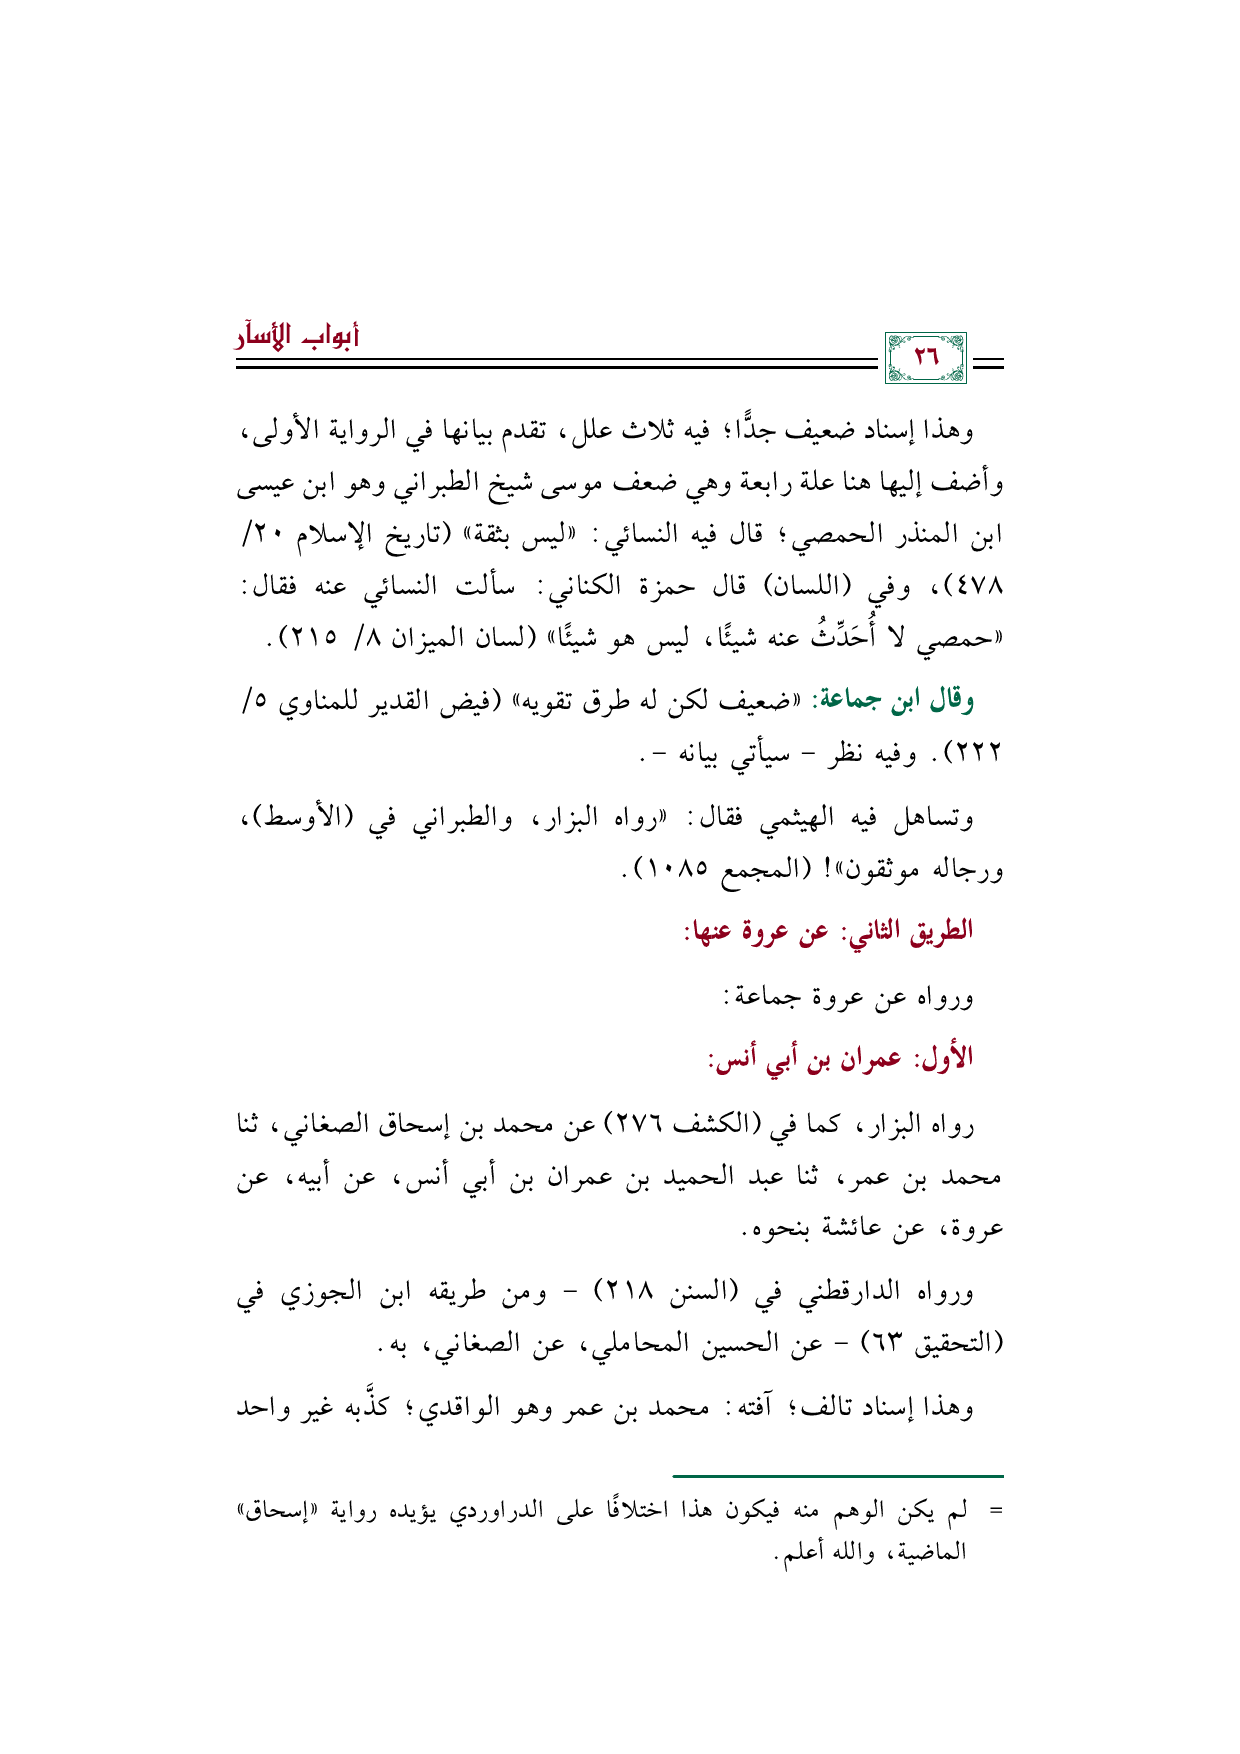 أبواب الأسآر
٢٦
وهذا إسناد ضعيف جدًّا؛ فيه ثلاث علل، تقدم بيانها في الرواية الأولى،
وأضف إليها هنا علة رابعة وهي ضعف موسى شيخ الطبراني وهو ابن عيسى
ابن المنذر الحمصي؛ قال فيه النسائي: «ليس بثقة» (تاريخ الإسلام ٢٠/
٤٧٨)، وفي (اللسان) قال حمزة الكناني: سألت النسائي عنه فقال:
«حمصي لا أُحَدِّثُ عنه شيئًا، ليس هو شيئًا» (لسان الميزان ٨/ ٢١٥).
وقال ابن جماعة: «ضعيف لكن له طرق تقويه» (فيض القدير للمناوي ٥/
٢٢٢). وفيه نظر – سيأتي بيانه –.
وتساهل فيه الهيثمي فقال: «رواه البزار، والطبراني في (الأوسط)،
ورجاله موثقون»! (المجمع ١٠٨٥).
الطريق الثاني: عن عروة عنها:
ورواه عن عروة جماعة:
الأول: عمران بن أبي أنس:
رواه البزار، كما في (الكشف ٢٧٦) عن محمد بن إسحاق الصغاني، ثنا
محمد بن عمر، ثنا عبد الحميد بن عمران بن أبي أنس، عن أبيه، عن
عروة، عن عائشة بنحوه.
ورواه الدارقطني في (السنن ٢١٨) – ومن طريقه ابن الجوزي في
(التحقيق ٦٣) – عن الحسين المحاملي، عن الصغاني، به.
وهذا إسناد تالف؛ آفته: محمد بن عمر وهو الواقدي؛ كذَّبه غير واحد
= لم يكن الوهم منه فيكون هذا اختلافًا على الدراوردي يؤيده رواية «إسحاق»
الماضية، والله أعلم.